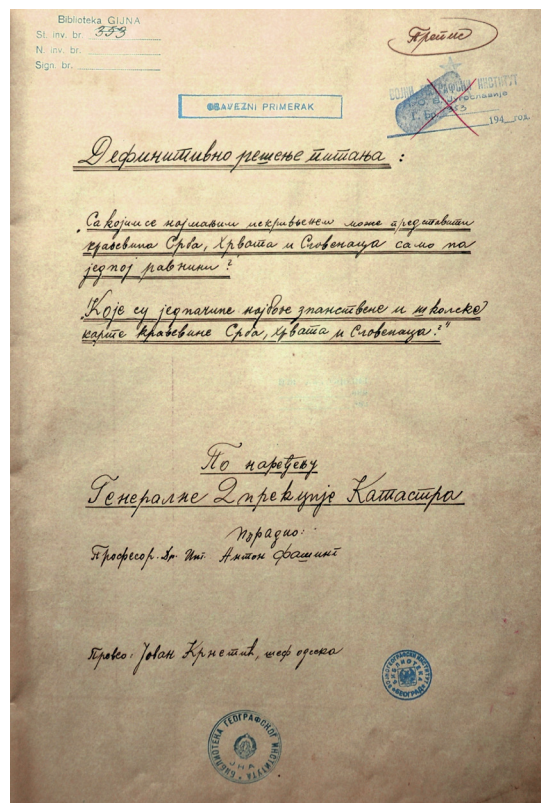 Biblioteka GIJNA
St. inv. br. 353
N. inv. br.
Sign. br.
Препис
ВОЈНИ ГЕОГРАФСКИ ИНСТИТУТ
Г. Бр. 353
194 год
OBAVEZNI PRIMERAK
Дефинитивно решење питања :
„Са којим се најмањим искривљењем може представити
краљевина Срба, Хрвата и Словенаца само на
једној равнини?"
„Које су једначине најбоље знанствене и школске
карте краљевине Срба, Хрвата и Словенаца?"
По наређењу
Генералне Дирекције Катастра
израдио:
Професор. Др. Инг. Антон Фашинг
Превео: Јован Крнетић, шеф одсека
ВОЈНОГЕОГРАФСКИ ИНСТИТУТ
БИБЛИОТЕКА
БЕОГРАД
БИБЛИОТЕКА ГЕОГРАФСКОГ ИНСТИТУТА
ЈНА